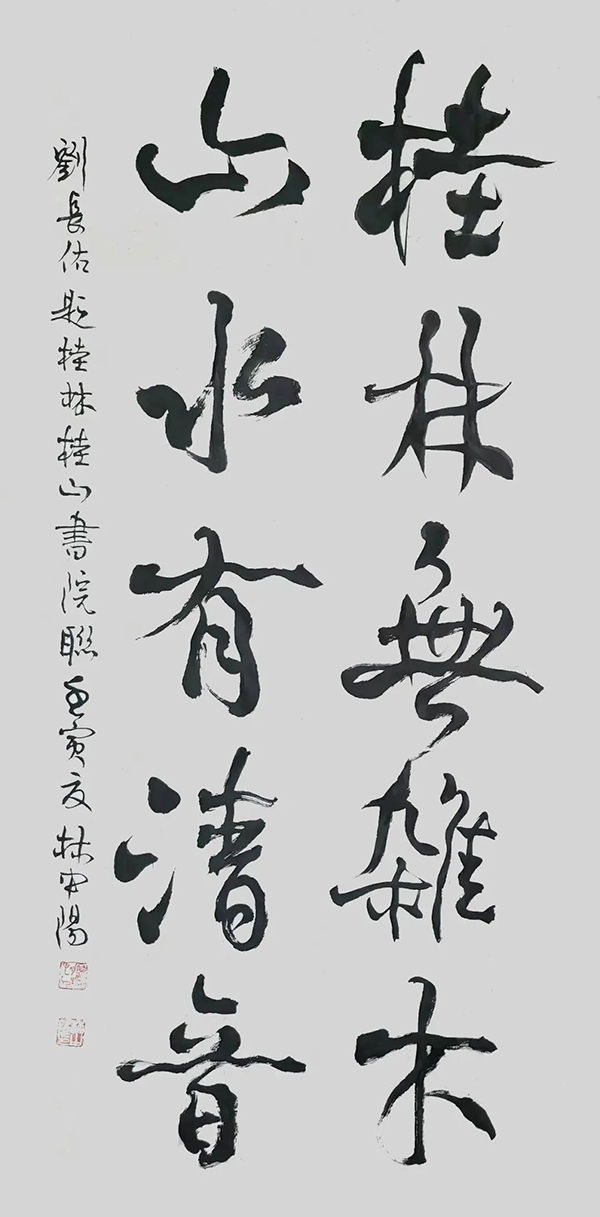 桂林無雜木
山水有清音
劉長佑題桂林桂山書院聯壬寅夏林中陽